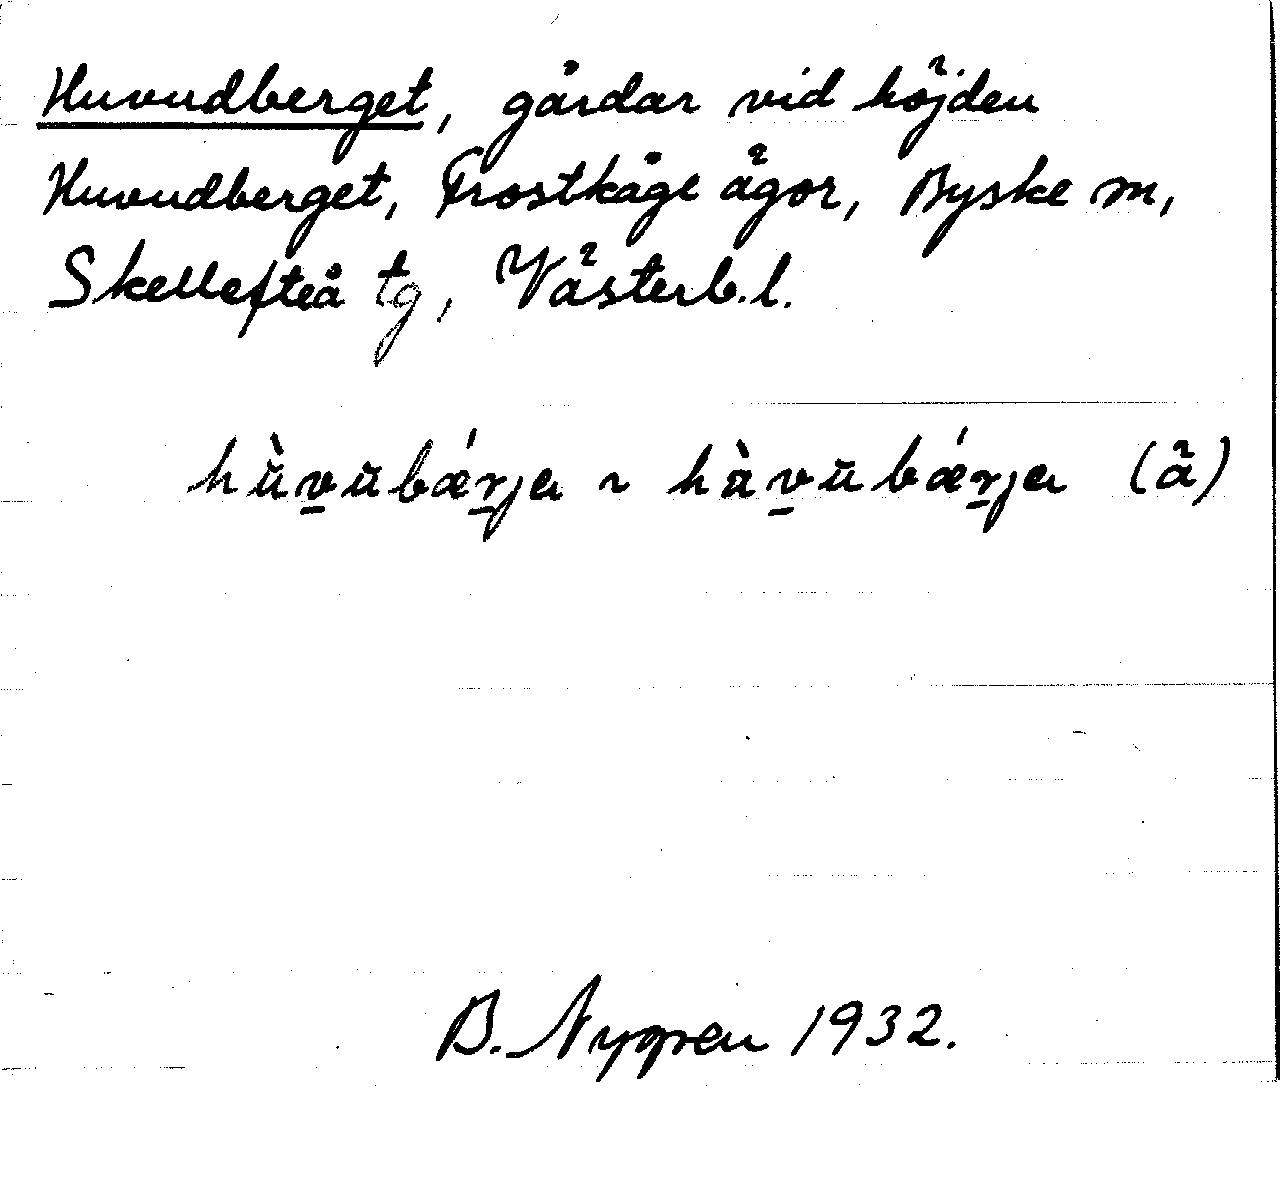 Huvudberget, gårdar vid höjden
Huvudberget, Frostkåge ägor, Byske sn,
Skellefteå tg, Västerb. l.
hùv̱ŭbǽṟjeɩ ~ hàv̱ŭbǽṟjeɩ (ä)
B. Nygren 1932.